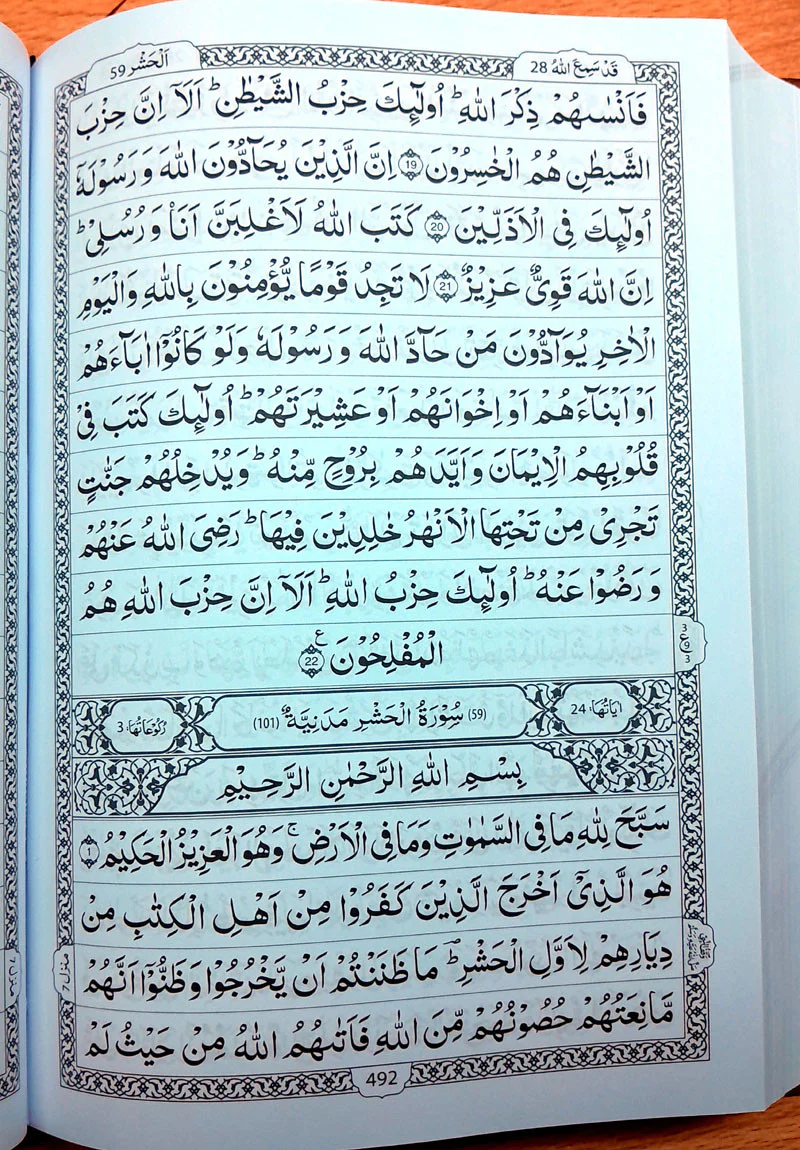 قَدْ سَمِعَ اللهُ 28
اَلْحَشْر 59
فَاَنْسٰىهُمْ ذِكْرَ اللّٰهِ ؕ اُولٰٓئِكَ حِزْبُ الشَّيْطٰنِ ؕ اَلَاۤ اِنَّ حِزْبَ
الشَّيْطٰنِ هُمُ الْخٰسِرُوْنَ 19 اِنَّ الَّذِيْنَ يُحَآدُّوْنَ اللّٰهَ وَ رَسُوْلَهٗۤ
اُولٰٓئِكَ فِى الْاَذَلِّيْنَ 20 كَتَبَ اللّٰهُ لَاَغْلِبَنَّ اَنَا۠ وَ رُسُلِىْ ؕ
اِنَّ اللّٰهَ قَوِىٌّ عَزِيْزٌ 21 لَا تَجِدُ قَوْمًا يُّؤْمِنُوْنَ بِاللّٰهِ وَالْيَوْمِ
الْاٰخِرِ يُوَآدُّوْنَ مَنْ حَآدَّ اللّٰهَ وَ رَسُوْلَهٗ وَلَوْ كَانُوْۤا اٰبَآءَهُمْ
اَوْ اَبْنَآءَهُمْ اَوْ اِخْوَانَهُمْ اَوْ عَشِيْرَتَهُمْ ؕ اُولٰٓئِكَ كَتَبَ فِىْ
قُلُوْبِهِمُ الْاِيْمَانَ وَ اَيَّدَهُمْ بِرُوْحٍ مِّنْهُ ؕ وَيُدْخِلُهُمْ جَنّٰتٍ
تَجْرِىْ مِنْ تَحْتِهَا الْاَنْهٰرُ خٰلِدِيْنَ فِيْهَا ؕ رَضِىَ اللّٰهُ عَنْهُمْ
وَ رَضُوْا عَنْهُ ؕ اُولٰٓئِكَ حِزْبُ اللّٰهِ ؕ اَلَاۤ اِنَّ حِزْبَ اللّٰهِ هُمُ
الْمُفْلِحُوْنَ 22 ع
3 ع 3
اٰيَاتُهَا: 24
(59) سُوْرَةُ الْحَشْرِ مَدَنِيَّةٌ (101)
رُكُوْعَاتُهَا: 3
بِسْمِ اللّٰهِ الرَّحْمٰنِ الرَّحِيْمِ
سَبَّحَ لِلّٰهِ مَا فِى السَّمٰوٰتِ وَمَا فِى الْاَرْضِ ۚ وَهُوَ الْعَزِيْزُ الْحَكِيْمُ 1
هُوَ الَّذِىْۤ اَخْرَجَ الَّذِيْنَ كَفَرُوْا مِنْ اَهْلِ الْكِتٰبِ مِنْ
دِيَارِهِمْ لِاَوَّلِ الْحَشْرِ ؕ مَا ظَنَنْتُمْ اَنْ يَّخْرُجُوْا وَظَنُّوْۤا اَنَّهُمْ
مَّانِعَتُهُمْ حُصُوْنُهُمْ مِّنَ اللّٰهِ فَاَتٰىهُمُ اللّٰهُ مِنْ حَيْثُ لَمْ
منزل 7
منزل 7
492